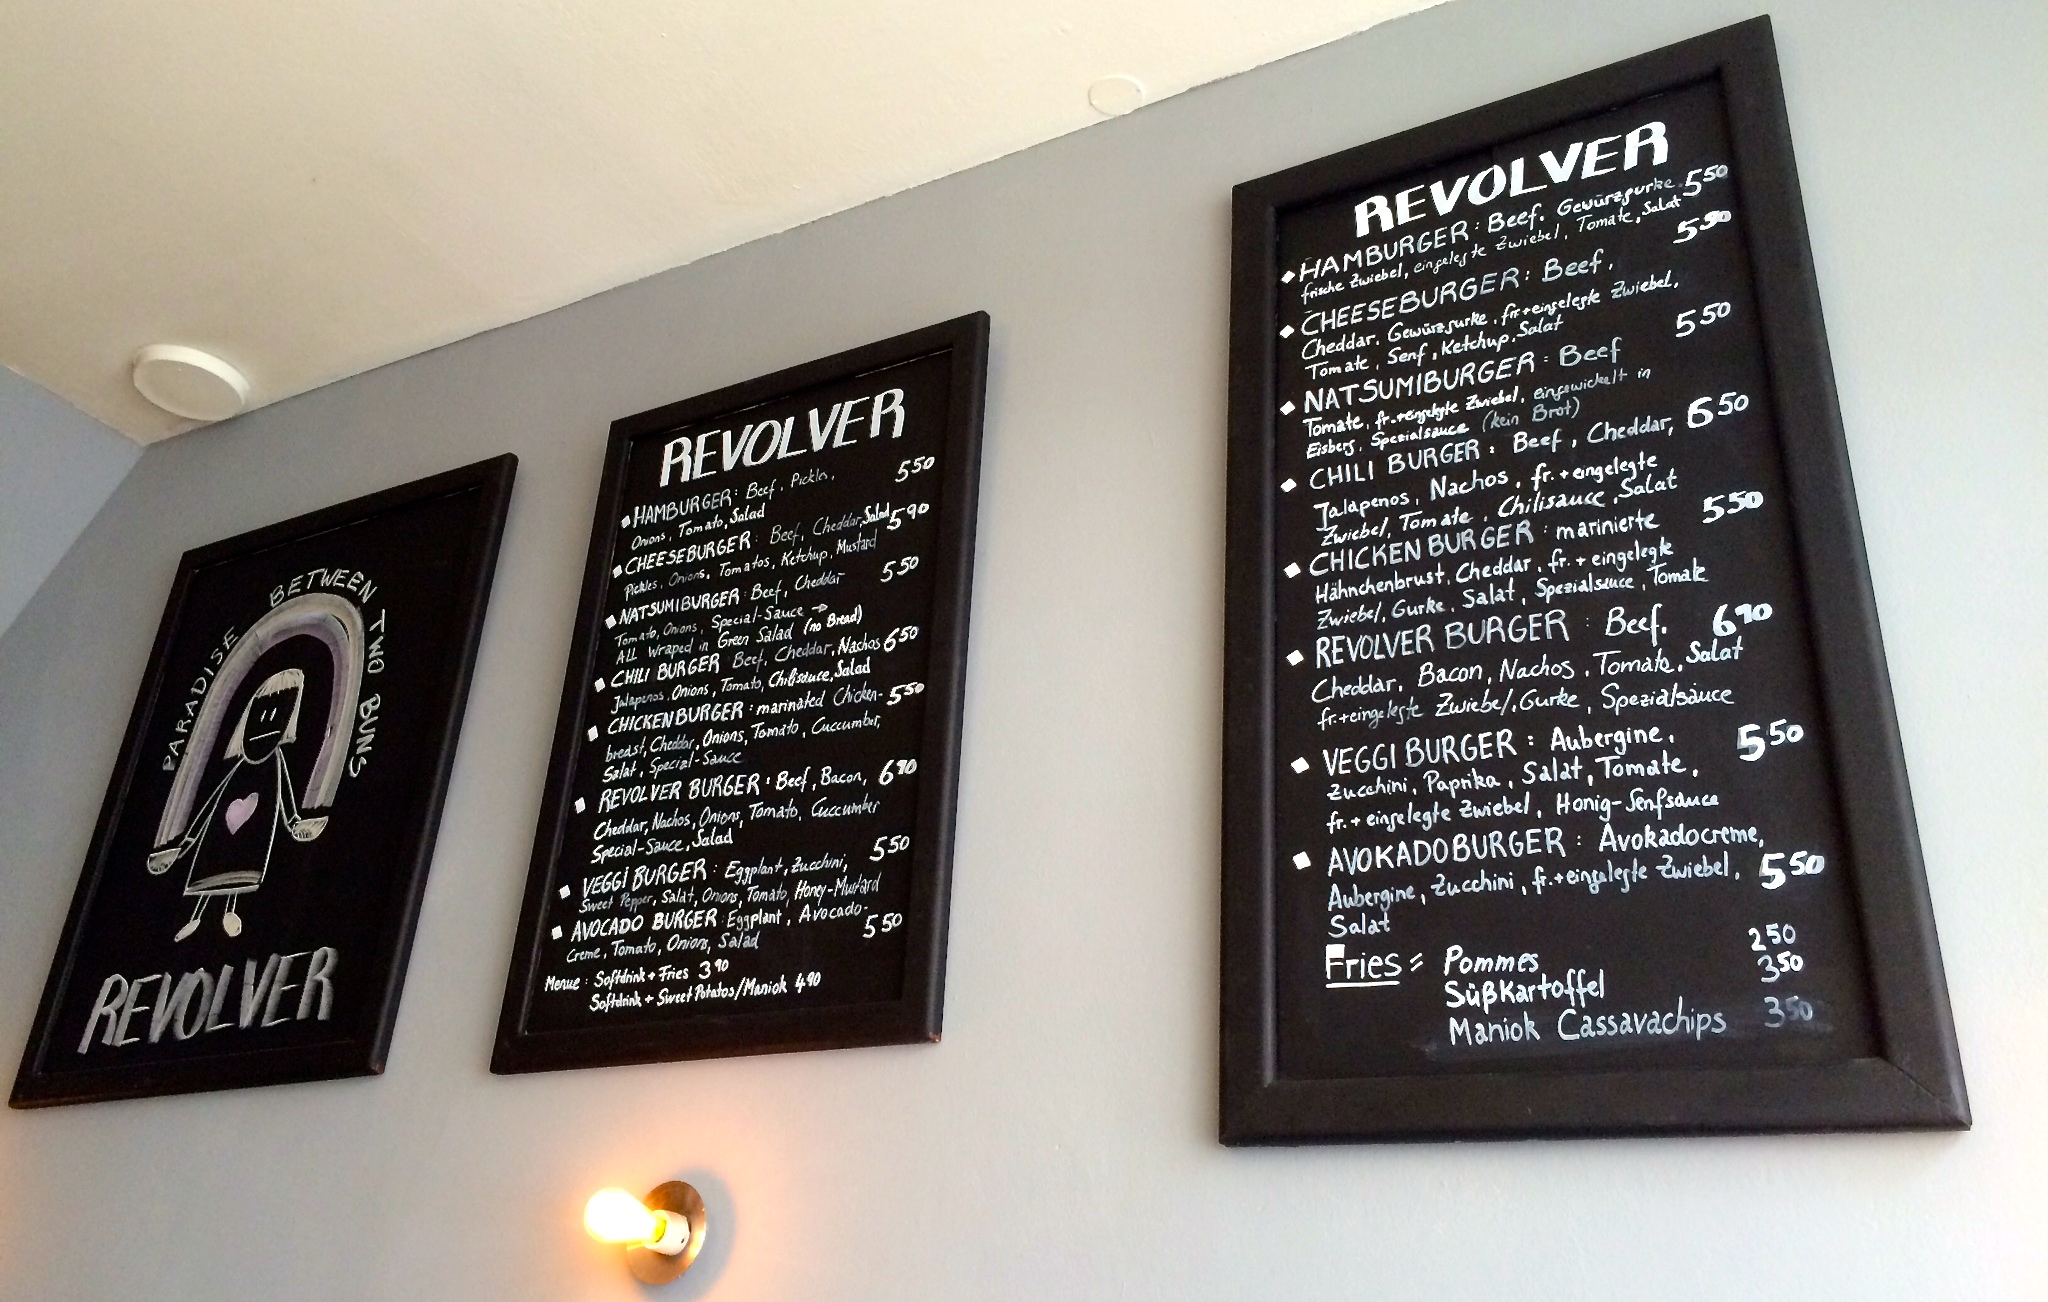 PARADISE BETWEEN TWO BUNS
REVOLVER
REVOLVER
HAMBURGER: Beef, Pickles, 5 50
Onions, Tomato, Salad
CHEESEBURGER: Beef, Cheddar, Salad 5 90
Pickles, Onions, Tomatos, Ketchup, Mustard
NATSUMIBURGER: Beef, Cheddar 5 50
Tomato, Onions, Special-Sauce →
ALL Wraped in Green Salad (no Bread)
CHILI BURGER Beef, Cheddar, Nachos 6 50
Jalapenos, Onions, Tomato, Chilisauce, Salad
CHICKENBURGER: marinated Chicken- 5 50
breast, Cheddar, Onions, Tomato, Cuccumber,
Salat, Special-Sauce
REVOLVER BURGER: Beef, Bacon, 6 90
Cheddar, Nachos, Onions, Tomato, Cuccumber
Special-Sauce, Salad
VEGGI BURGER: Eggplant, Zucchini, 5 50
Sweet Pepper, Salat, Onions, Tomato, Honey-Mustard
AVOCADO BURGER: Eggplant, Avocado- 5 50
Creme, Tomato, Onions, Salad
Menue: Softdrink + Fries 3 90
Softdrink + Sweet Potatos/Maniok 4 90
REVOLVER
HAMBURGER: Beef. Gewürzgurke 5 50
frische Zwiebel, eingelegte Zwiebel, Tomate, Salat
CHEESEBURGER: Beef, 5 90
Cheddar, Gewürzgurke, fr.+eingelegte Zwiebel,
Tomate, Senf, Ketchup, Salat
NATSUMIBURGER: Beef 5 50
Tomate, fr.+eingelegte Zwiebel, eingewickelt in
Eisberg, Spezialsauce (kein Brot)
CHILI BURGER: Beef, Cheddar, 6 50
Jalapenos, Nachos, fr.+eingelegte
Zwiebel, Tomate, Chilisauce, Salat
CHICKEN BURGER: marinierte 5 50
Hähnchenbrust, Cheddar, fr.+eingelegte
Zwiebel, Gurke, Salat, Spezialsauce, Tomate
REVOLVER BURGER: Beef, 6 90
Cheddar, Bacon, Nachos, Tomate, Salat
fr.+eingelegte Zwiebel, Gurke, Spezialsauce
VEGGI BURGER: Aubergine, 5 50
Zucchini, Paprika, Salat, Tomate,
fr.+eingelegte Zwiebel, Honig-Senfsauce
AVOKADOBURGER: Avokadocreme,
Aubergine, Zucchini, fr.+eingelegte Zwiebel, 5 50
Salat
Fries = Pommes 2 50
Süßkartoffel 3 50
Maniok Cassavachips 3 50